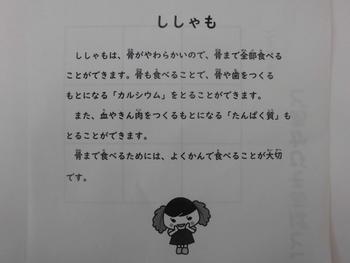 ししゃも
ししゃもは、骨がやわらかいので、骨まで全部食べる
ことができます。骨も食べることで、骨や歯をつくる
もとになる「カルシウム」をとることができます。
また、血やきん肉をつくるもとになる「たんぱく質」も
とることができます。
骨まで食べるためには、よくかんで食べることが大切
です。